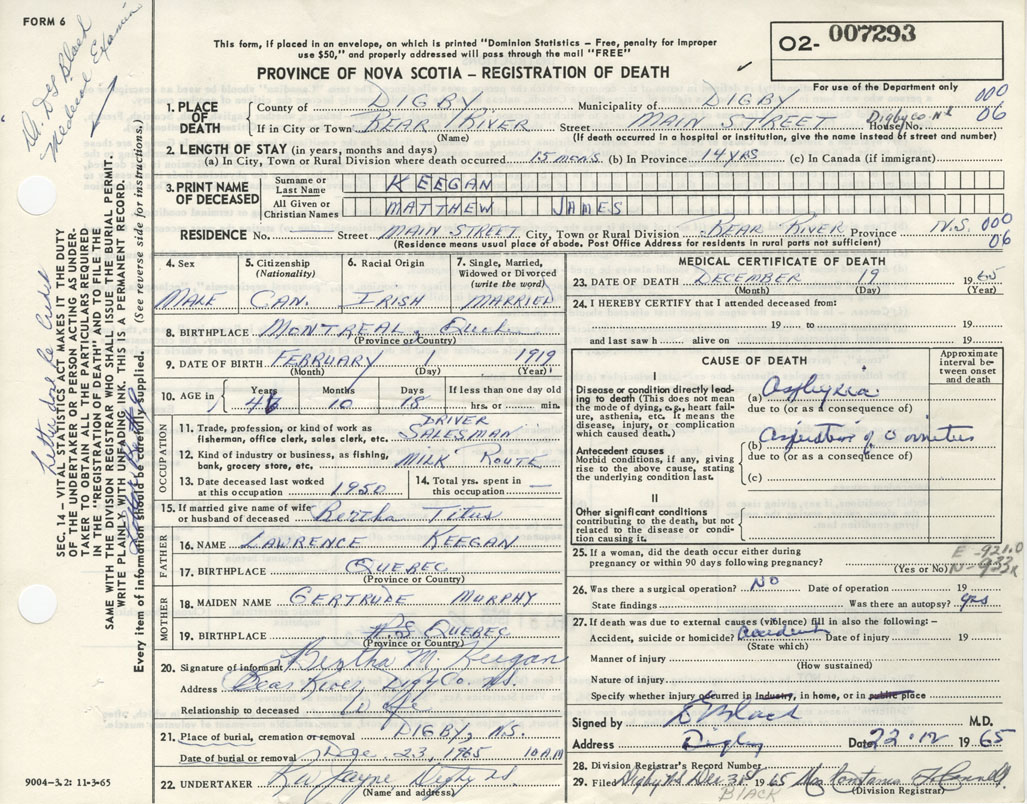 FORM 6
This form, if placed in an envelope, on which is printed "Dominion Statistics – Free, penalty for improper
use $50," and properly addressed will pass through the mail "FREE"
PROVINCE OF NOVA SCOTIA – REGISTRATION OF DEATH
02- 007293
For use of the Department only
000
06
Dr. D. G. Black
Medical Examin
1. PLACE OF DEATH County of DIGBY Municipality of DIGBY
If in City or Town BEAR RIVER Street MAIN STREET House No. Digby co N.S.
(Name) (If death occurred in a hospital or institution, give the name instead of street and number)
2. LENGTH OF STAY (in years, months and days)
(a) In City, Town or Rural Division where death occurred 15 mcns. (b) In Province 14 YRS (c) In Canada (if immigrant)
3. PRINT NAME OF DECEASED Surname or Last Name KEEGAN
All Given or Christian Names MATTHEW JAMES
RESIDENCE No. — Street MAIN STREET City, Town or Rural Division BEAR RIVER Province N.S. 000
06
(Residence means usual place of abode. Post Office Address for residents in rural parts not sufficient)
4. Sex MALE
5. Citizenship (Nationality) CAN.
6. Racial Origin IRISH
7. Single, Married, Widowed or Divorced (write the word) MARRIED
8. BIRTHPLACE MONTREAL, Queb.
(Province or Country)
9. DATE OF BIRTH FEBRUARY 1 1919
(Month) (Day) (Year)
10. AGE in Years 46 Months 10 Days 18 If less than one day old hrs. or min.
OCCUPATION
11. Trade, profession, or kind of work as fisherman, office clerk, sales clerk, etc. DRIVER SALESMAN
12. Kind of industry or business, as fishing, bank, grocery store, etc. MILK ROUTE
13. Date deceased last worked at this occupation 1950
14. Total yrs. spent in this occupation —
15. If married give name of wife or husband of deceased Bertha Titus
FATHER
16. NAME LAWRENCE KEEGAN
17. BIRTHPLACE QUEBEC
(Province or Country)
MOTHER
18. MAIDEN NAME GERTRUDE MURPHY
19. BIRTHPLACE QUEBEC
(Province or Country)
20. Signature of informant Bertha M. Keegan
Address Bear River, Digby Co. N.S.
Relationship to deceased Wife
21. Place of burial, cremation or removal DIGBY, N.S.
Date of burial or removal Dec. 23, 1965 10 AM
22. UNDERTAKER Jayne Digby NS
(Name and address)
MEDICAL CERTIFICATE OF DEATH
23. DATE OF DEATH DECEMBER 19 1965
(Month) (Day) (Year)
24. I HEREBY CERTIFY that I attended deceased from:
19 to 19
and last saw h alive on 19
CAUSE OF DEATH
Approximate interval between onset and death
I
Disease or condition directly leading to death (This does not mean the mode of dying, e.g., heart failure, asthenia, etc. It means the disease, injury, or complication which caused death.)
(a) Asphyxia
due to (or as a consequence of)
Antecedent causes
Morbid conditions, if any, giving rise to the above cause, stating the underlying condition last.
(b) Aspiration of vomitus
due to (or as a consequence of)
(c)
II
Other significant conditions contributing to the death, but not related to the disease or condition causing it.
25. If a woman, did the death occur either during pregnancy or within 90 days following pregnancy?
(Yes or No)
E-921.0
N-933x
26. Was there a surgical operation? NO Date of operation 19
State findings Was there an autopsy? yes
27. If death was due to external causes (violence) fill in also the following:–
Accident, suicide or homicide? Accident Date of injury 19
(State which)
Manner of injury
(How sustained)
Nature of injury
Specify whether injury occurred in Industry, in home, or in public place
Signed by Black M.D.
Address Digby Date 22.12 1965
28. Division Registrar's Record Number
29. Filed Digby NS Dec 31st 1965 Mrs Constance
(Division Registrar)
BLACK
SEC. 14 – VITAL STATISTICS ACT MAKES IT THE DUTY
OF THE UNDERTAKER OR PERSON ACTING AS UNDER-
TAKER TO OBTAIN ALL THE PARTICULARS REQUIRED
IN THE "REGISTRATION OF DEATH" AND TO FILE THE
SAME WITH THE DIVISION REGISTRAR WHO SHALL ISSUE THE BURIAL PERMIT.
WRITE PLAINLY WITH UNFADING INK. THIS IS A PERMANENT RECORD.
Every item of information should be carefully supplied. (See reverse side for instructions.)
9004-3.2: 11-3-65